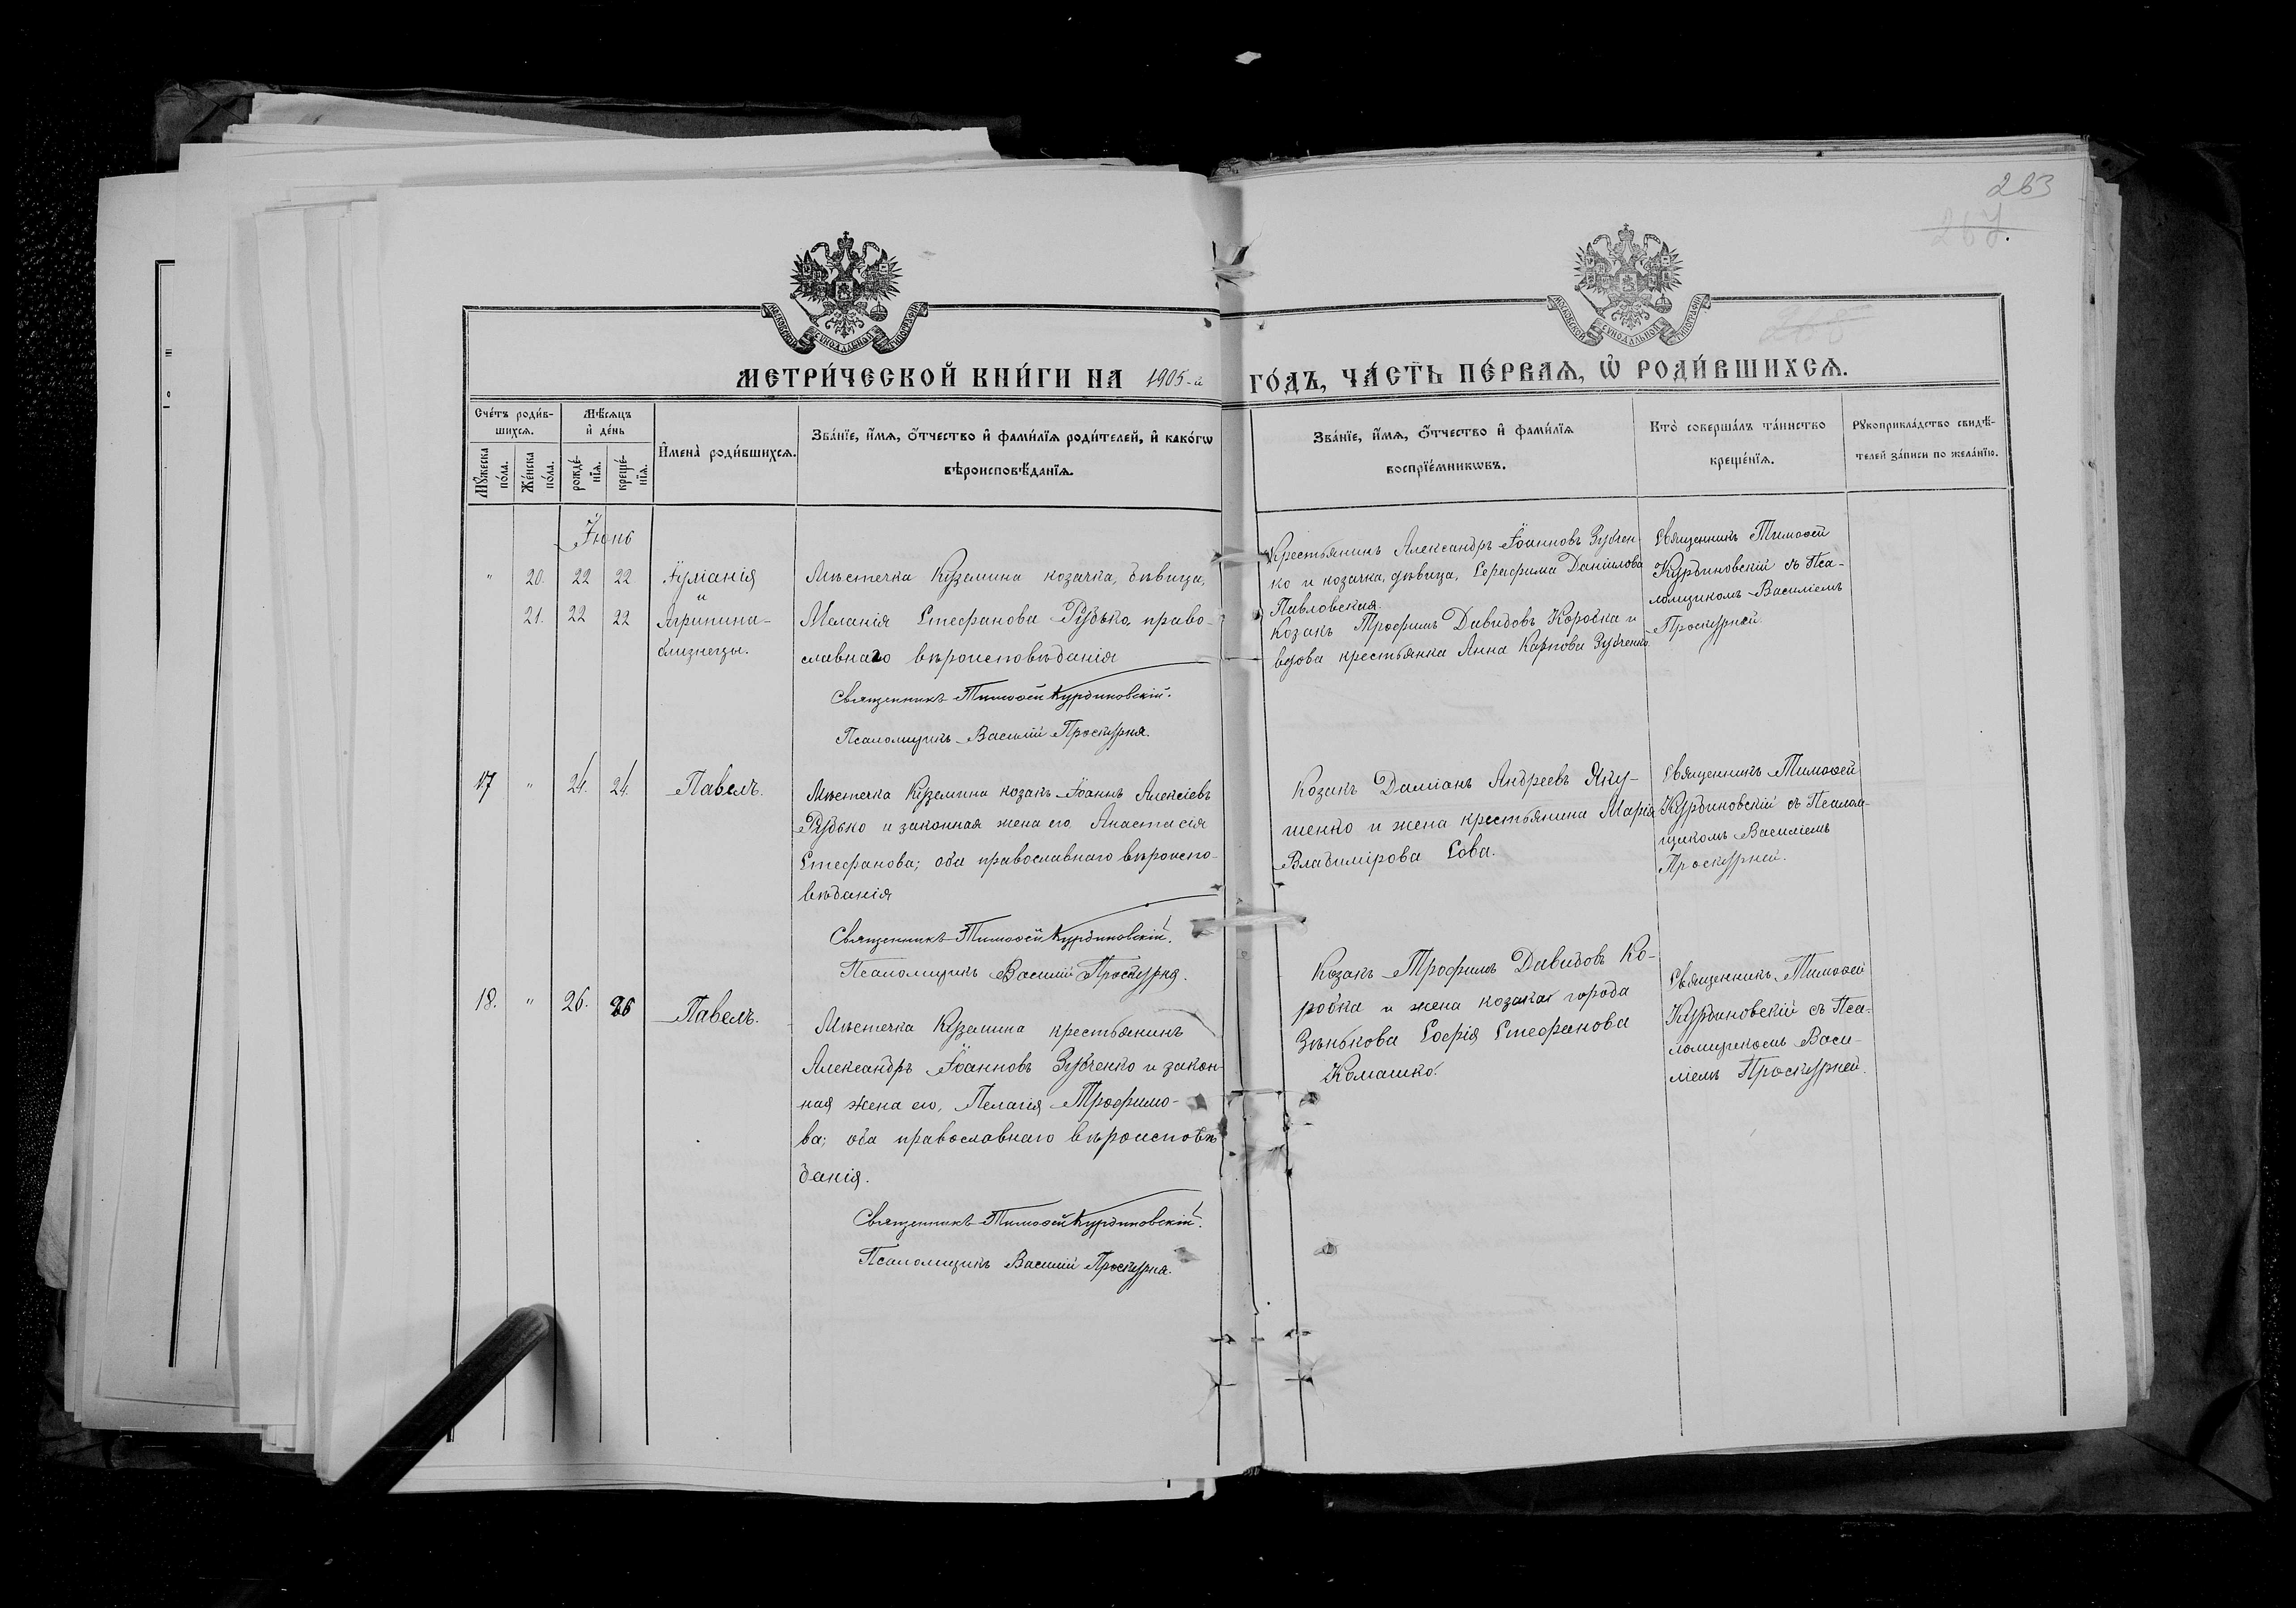 263
267.
268
МОСКОВСКОЙ СУНОДАЛЬНОЙ ТИПОГРАФІИ
МОСКОВСКОЙ СУНОДАЛЬНОЙ ТИПОГРАФІИ
МЕТРИ́ЧЕСКОЙ КНИ́ГИ НА 1905-й ГО́ДЪ, ЧА́СТЬ ПЕ́РВАЯ, Ѡ РОДИ́ВШИХСѦ.
Сче́тъ роди́в-
шихсѧ.
Мꙋ́жеска по́ла.
Же́нска по́ла.
Мѣ́сѧцъ
и҆ де́нь
рожде́-
нїѧ.
креще́-
нїѧ.
И҆мена̀ роди́вшихсѧ.
Зва́нїе, и҆́мѧ, ѻ҆́тчество и҆ фами́лїѧ роди́телей, и҆ како́гѡ
вѣроисповѣ́данїѧ.
Зва́нїе, и҆́мѧ, ѻ҆́тчество и҆ фами́лїѧ
воспрїе́мникѡвъ.
Кто̀ соверша́лъ та́инство
креще́нїѧ.
Рꙋкоприкла́дство свидѣ́-
телей за́писи по жела́нїю.
Іюнь
" 20. 22 22 Іуліанія
и
21. 22 22 Агрипина -
близнецы.
Мѣстечка Куземина козачка, дѣвица,
Меланія Стефанова Рудько, право-
славнаго вѣроисповѣданія
Священникъ Тимоѳей Курдиновскій.
Псаломщикъ Василій Проскурня.
Крестьянинъ Александръ Іоанновъ Зубчен-
ко и козачка, дѣвица, Серафима Даніилова
Павловская.
Козакъ Трофимъ Давидовъ Коробка и
вдова крестьянка Анна Карпова Зубченко
Священникъ Тимоѳей
Курдиновскій съ Пса-
ломщикомъ Василіемъ
Проскурней.
17 " 24. 24. Павелъ.
Мѣстечка Куземина козакъ Іоаннъ Алексіевъ
Рудько и законная жена его Анастасія
Стефанова; оба православнаго вѣроиспо-
вѣданія
Священникъ Тимоѳей Курдиновскій.
Псаломщикъ Василій Проскурня.
Козакъ Даміанъ Андреевъ Яку-
шенко и жена крестьянина Марія
Владимірова Сова.
Священникъ Тимоѳей
Курдиновскій съ Псалом-
щикомъ Василіемъ
Проскурней.
18. " 26. 26 Павелъ.
Мѣстечка Куземина крестьянинъ
Александръ Іоанновъ Зубченко и закон-
ная жена его, Пелагія Трофимо-
ва; оба православнаго вѣроисповѣ
данія.
Священникъ Тимоѳей Курдиновскій.
Псаломщикъ Василій Проскурня.
Козакъ Трофимъ Давидовъ Ко-
робка и жена козака города
Зѣнькова Софія Стефанова
Комашко.
Священникъ Тимоѳей
Курдиновскій съ Пса-
ломщикомъ Васи-
ліемъ Проскурней.